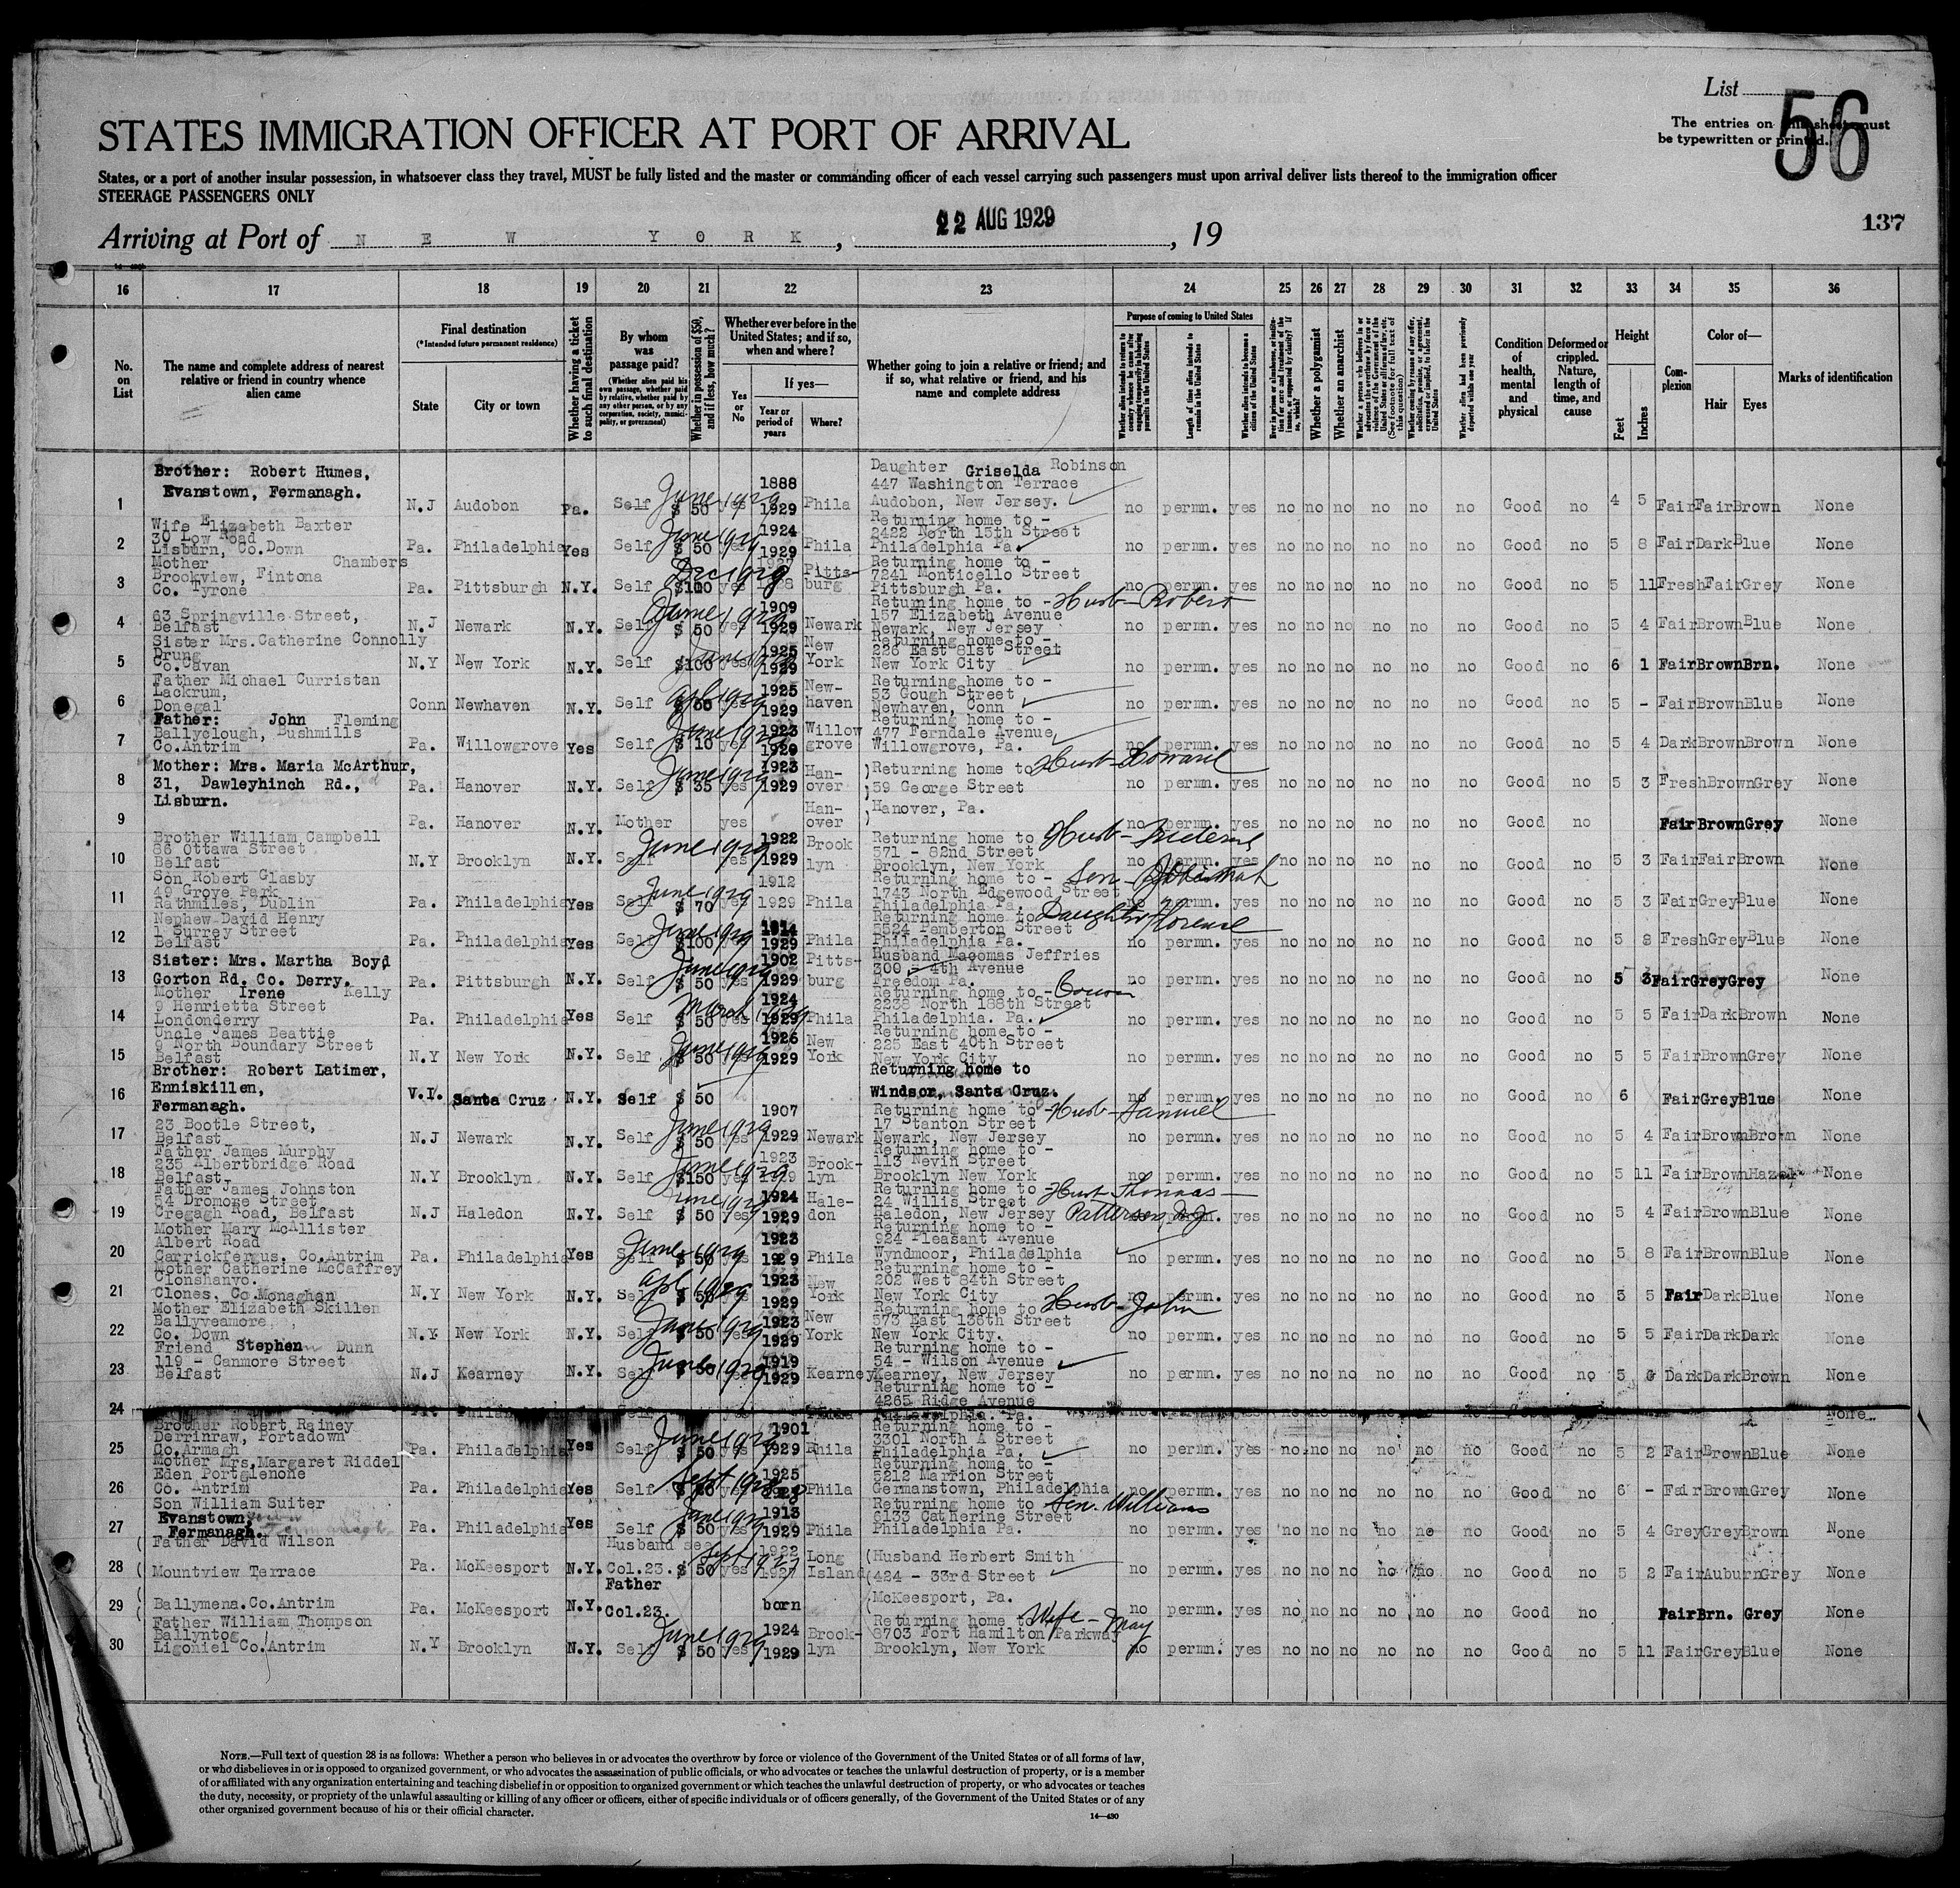 List
56
The entries on this sheet must
be typewritten or printed.
STATES IMMIGRATION OFFICER AT PORT OF ARRIVAL
States, or a port of another insular possession, in whatsoever class they travel, MUST be fully listed and the master or commanding officer of each vessel carrying such passengers must upon arrival deliver lists thereof to the immigration officer
STEERAGE PASSENGERS ONLY
Arriving at Port of N E W Y O R K, 22 AUG 1929, 19
137
16 17 18 19 20 21 22 23 24 25 26 27 28 29 30 31 32 33 34 35 36
No. on List
The name and complete address of nearest relative or friend in country whence alien came
Final destination
(*Intended future permanent residence)
State
City or town
Whether having a ticket to such final destination
By whom was passage paid?
(Whether alien paid his own passage, whether paid by relative, whether paid by any other person, or by any corporation, society, municipality, or government)
Whether in possession of $50, and if less, how much?
Whether ever before in the United States; and if so, when and where?
Yes or No
If yes—
Year or period of years
Where?
Whether going to join a relative or friend; and if so, what relative or friend, and his name and complete address
Purpose of coming to United States
Length of time alien intends to remain in the United States
Whether alien intends to become a citizen of the United States
Whether a polygamist
Whether an anarchist
Whether alien had been previously deported within one year
Condition of health, mental and physical
Deformed or crippled. Nature, length of time, and cause
Height
Feet
Inches
Complexion
Color of—
Hair
Eyes
Marks of identification
1 Brother: Robert Humes, Evanstown, Fermanagh. N.J Audobon Pa. Self June 1929 $ 50 yes 1888 1929 Phila Daughter Griselda Robinson 447 Washington Terrace Audobon, New Jersey. no permn. yes no no no no no no Good no 4 5 Fair Fair Brown None
2 Wife Elizabeth Baxter 30 Low Road Lisburn, Co.Down Pa. Philadelphia Yes Self June 1929 $ 50 yes 1924 1929 Phila Returning home to - 2422 North 15th Street Philadelphia Pa no permn. yes no no no no no no Good no 5 8 Fair Dark Blue None
3 Mother Chambers Brookview, Fintona Co. Tyrone Pa. Pittsburgh N.Y. Self $100 yes Pittsburg Returning home to - 7241 Monticello Street Pittsburgh Pa. no permn. yes no no no no no no Good no 5 11 Fresh Fair Grey None
4 63 Springville Street, Belfast N.J Newark N.Y. Self June 1929 $ 50 yes 1909 1929 Newark Returning home to - Husb - Robert 157 Elizabeth Avenue Newark, New Jersey no permn. yes no no no no no no Good no 5 4 Fair Brown Blue None
5 Sister Mrs.Catherine Connolly Drung Co.Cavan N.Y New York N.Y. Self $100 yes 1925 1929 New York Returning home to - 226 East 81st Street New York City no permn. yes no no no no no no Good no 6 1 Fair Brown Brn. None
6 Father Michael Curristan Lackrum, Donegal Conn Newhaven N.Y. Self yes 1925 1929 Newhaven Returning home to - 53 Gough Street Newhaven, Conn no permn. yes no no no no no no Good no 5 - Fair Brown Blue None
7 Father: John Fleming Ballyclough, Bushmills Co.Antrim Pa. Willowgrove Yes Self June 1929 $ 10 yes 1923 1929 Willow grove Returning home to - 477 Ferndale Avenue, Willowgrove, Pa. no permn. yes no no no no no no Good no 5 4 Dark Brown Brown None
8 Mother: Mrs. Maria McArthur, 31, Dawleyhinch Rd., Lisburn. Pa. Hanover N.Y. Self June 1929 $ 35 yes 1923 1929 Hanover Returning home to Husb - Howard 59 George Street no permn. yes no no no no no no Good no 5 3 Fresh Brown Grey None
9 Pa. Hanover N.Y. Mother yes Hanover Hanover, Pa. no permn. yes no no no no no no Good no Fair Brown Grey None
10 Brother William Campbell 86 Ottawa Street, Belfast N.Y Brooklyn N.Y. Self June 1929 1922 1929 Brooklyn Returning home to Husb - 571 - 82nd Street Brooklyn, New York no permn. yes no no no no no no Good no 5 3 Fair Fair Brown None
11 Son Robert Glasby 49 Grove Park Rathmiles, Dublin Pa. Philadelphia Yes Self June 1929 $ 70 yes 1912 1929 Phila Returning home to - Son - 1743 North Edgewood Street Philadelphia Pa. no permn. yes no no no no no no Good no 5 3 Fair Grey Blue None
12 Nephew David Henry 1 Surrey Street Belfast Pa. Philadelphia Yes Self June 1929 $100 yes 1929 Phila Returning home to Daughter Florence 5524 Pemberton Street Philadelphia Pa. no permn. yes no no no no no no Good no 5 8 Fresh Grey Blue None
13 Sister: Mrs. Martha Boyd Gorton Rd. Co. Derry. Pa. Pittsburgh N.Y. Self June 1929 $ 50 yes 1902 1929 Pittsburg Husband Macomas Jeffries 300 - 4th Avenue Freedom Pa. no permn. yes no no no no no no Good no 5 3 Fair Grey Grey None
14 Mother Irene Kelly 9 Henrietta Street Londonderry Pa. Philadelphia Yes Self March 1929 $ 50 yes 1924 1929 Phila Returning home to - 2238 North 186th Street Philadelphia. Pa. no permn. yes no no no no no no Good no 5 5 Fair Dark Brown None
15 Uncle James Beattie 9 North Boundary Street Belfast N.Y New York N.Y. Self June 1929 $ 50 yes 1926 1929 New York Returning home to - 225 East 40th Street New York City no permn. yes no no no no no no Good no 5 5 Fair Brown Grey None
16 Brother: Robert Latimer, Enniskillen, Fermanagh. V.I. Santa Cruz N.Y. Self $ 50 Returning home to Windsor, Santa Cruz. no permn. yes no no no no no no Good no 6 Fair Grey Blue None
17 23 Bootle Street, Belfast N.J Newark N.Y. Self June 1929 $ 50 yes 1907 1929 Newark Returning home to - Husb - Samuel 17 Stanton Street Newark, New Jersey no permn. yes no no no no no no Good no 5 4 Fair Brown Brown None
18 Father James Murphy 235 Albertbridge Road Belfast N.Y Brooklyn N.Y. Self June 1929 $150 yes 1923 1929 Brooklyn Returning home to - 113 Nevin Street Brooklyn New York no permn. yes no no no no no no Good no 5 11 Fair Brown Hazel None
19 Father James Johnston 54 Dromose Street Cregagh Road, Belfast N.J Haledon N.Y. Self June 1929 $ 50 yes 1924 1929 Haledon Returning home to - Husb - Thomas 24 Willis Street Haledon, New Jersey Patterson N J no permn. yes no no no no no no Good no 5 4 Fair Brown Blue None
20 Mother Mary McAllister Albert Road Carrickfergus. Co.Antrim Pa. Philadelphia Yes Self June 1929 $ 50 yes 1923 1929 Phila Returning home to - 924 Pleasant Avenue Wyndmoor, Philadelphia no permn. yes no no no no no no Good no 5 8 Fair Brown Blue None
21 Mother Catherine McCaffrey Clonshanvo. Clones. Co.Monaghan N.Y New York N.Y. Self $ 50 1923 1929 New York Returning home to - 202 West 84th Street New York City no permn. yes no no no no no no Good no 5 5 Fair Dark Blue None
22 Mother Elizabeth Skillen Ballyveamore, Co. Down N.Y. New York N.Y. Self June 1929 $ 50 yes 1923 1929 New York Returning home to Husb - John 573 East 136th Street New York City. no permn. yes no no no no no no Good no 5 5 Fair Dark Dark None
23 Friend Stephen Dunn 119 - Canmore Street Belfast N.J Kearney N.Y. Self June 1929 $ 50 yes 1919 1929 Kearney Returning home to - 54 - Wilson Avenue Kearney, New Jersey no permn. yes no no no no no no Good no 5 Dark Dark Brown None
24 Returning home to - 4265 Ridge Avenue Philadelphia. Pa. None
25 Brother Robert Rainey Derrinraw, Portadown Co.Armagh Pa. Philadelphia Yes Self June 1929 $ 50 yes 1901 1929 Phila Returning home to - 3301 North A Street Philadelphia Pa. no permn. yes no no no no no no Good no 5 2 Fair Brown Blue None
26 Mother Mrs.Margaret Riddel Eden Portglenone Co. Antrim Pa. Philadelphia Yes Self Sept 1928 yes 1925 Phila Returning home to - 5212 Marrion Street Germanstown, Philadelphia no permn. yes no no no no no no Good no 6 - Fair Brown Grey None
27 Son William Suiter Evanstown, Fermanagh. Pa. Philadelphia Yes Self June 1929 $ 50 yes 1913 1929 Phila Returning home to Son. William 6133 Catherine Street Philadelphia Pa. no permn. yes no no no no no no Good no 5 4 Grey Grey Brown None
28 Father David Wilson Mountview Terrace Pa. McKeesport N.Y. Husband see Col.23. Sept 1927 $ 50 yes 1922 1927 Long Island (Husband Herbert Smith (424 - 33rd Street no permn. yes no no no no no no Good no 5 2 Fair Auburn Grey None
29 Ballymena.Co.Antrim Pa. McKeesport N.Y. Father Col.23. born (McKeesport, Pa. no permn. yes no no no no no no Good no Fair Brn. Grey None
30 Father William Thompson Ballyntog Ligoniel Co.Antrim N.Y Brooklyn N.Y. Self June 1929 $ 50 yes 1924 1929 Brooklyn Returning home to Wife - May 8703 Fort Hamilton Parkway Brooklyn, New York no permn. yes no no no no no no Good no 5 11 Fair Grey Blue None
NOTE.—Full text of question 28 is as follows: Whether a person who believes in or advocates the overthrow by force or violence of the Government of the United States or of all forms of law,
or who disbelieves in or is opposed to organized government, or who advocates the assassination of public officials, or who advocates or teaches the unlawful destruction of property, or is a member
of or affiliated with any organization entertaining and teaching disbelief in or opposition to organized government or which teaches the unlawful destruction of property, or who advocates or teaches
the duty, necessity, or propriety of the unlawful assaulting or killing of any officer or officers, either of specific individuals or of officers generally, of the Government of the United States or of any
other organized government because of his or their official character.
14—430